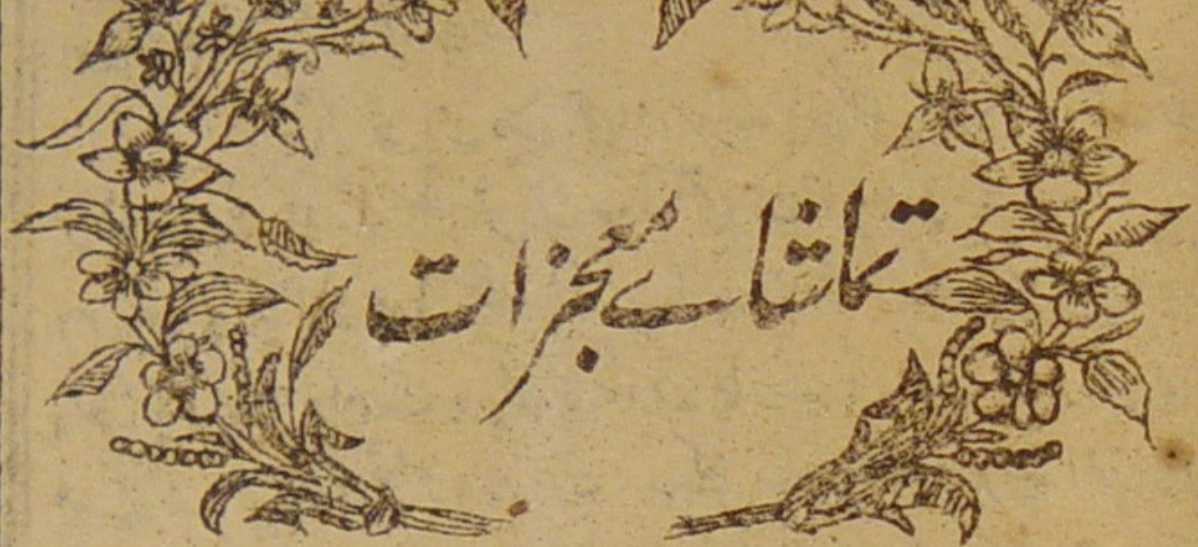 تماشاے معجزات